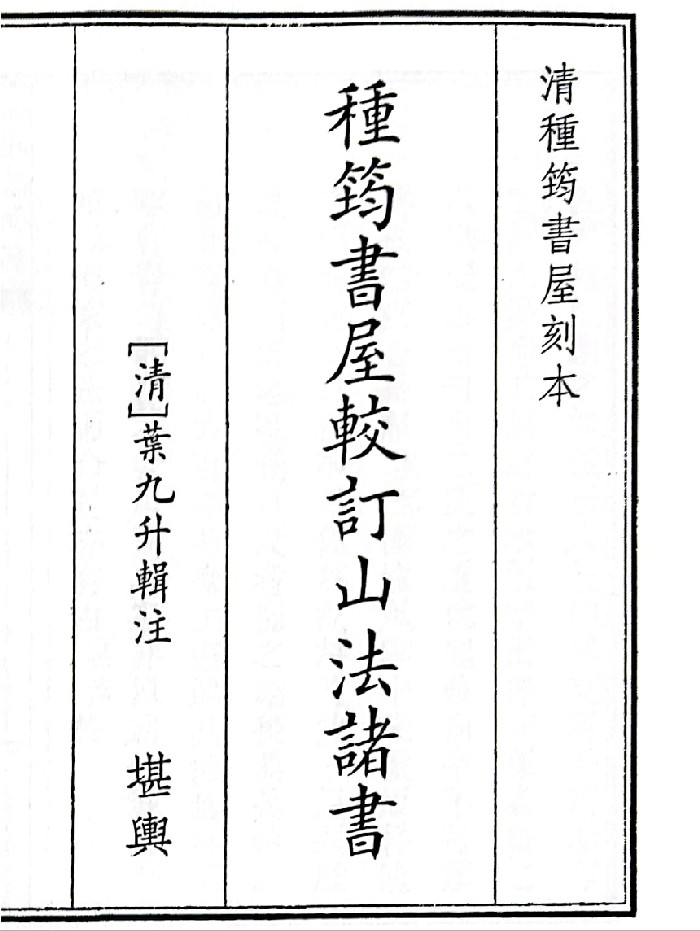 清種筠書屋刻本
種筠書屋較訂山法諸書
[清]葉九升輯注 堪輿